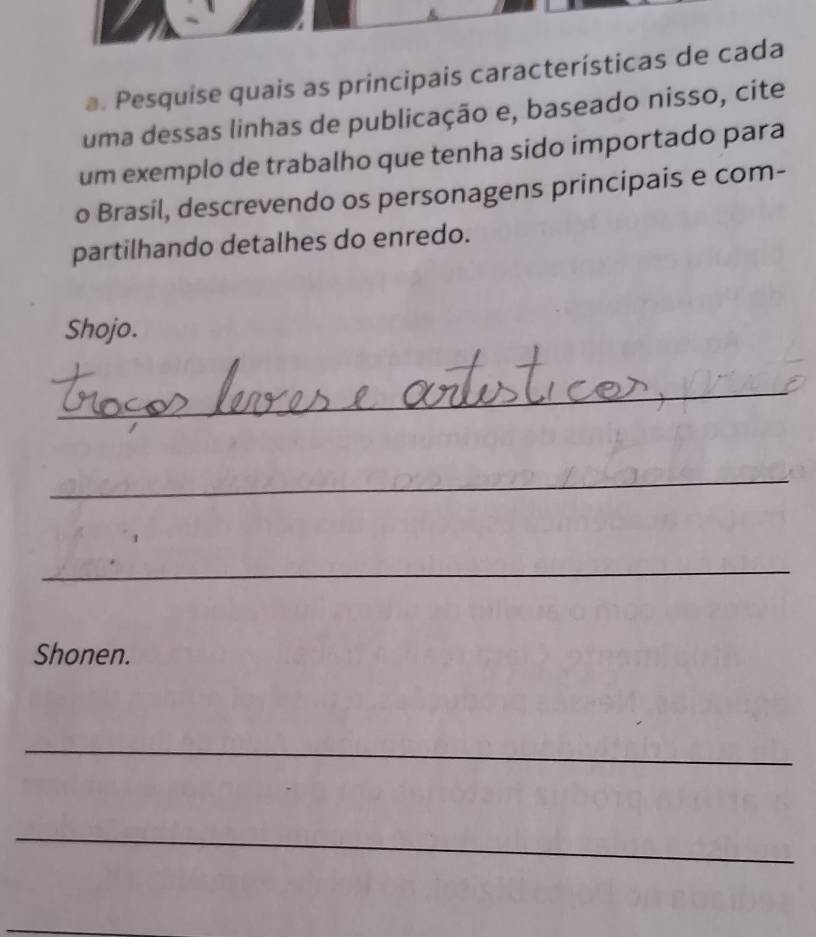 a. Pesquise quais as principais características de cada
uma dessas linhas de publicação e, baseado nisso, cite
um exemplo de trabalho que tenha sido importado para
o Brasil, descrevendo os personagens principais e com-
partilhando detalhes do enredo.
Shojo.
traços leves e artisticos,
Shonen.